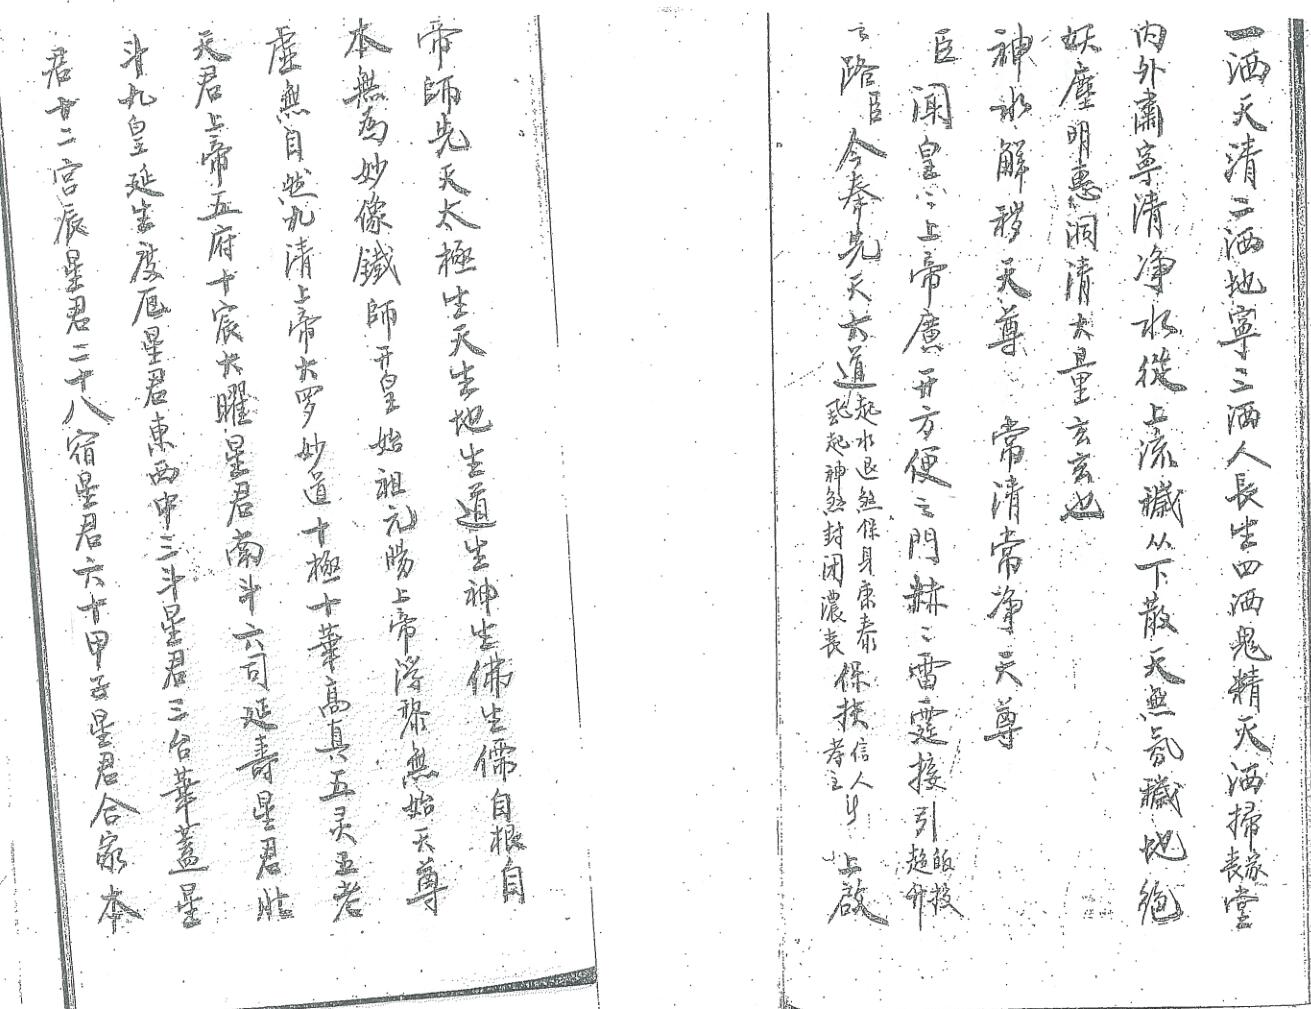 一洒天清二洒地寧三洒人長生四洒鬼精灭洒掃家喪堂
内外肅寧清净水從上流穢从下散天無氛穢地絶
妖塵明惠洞清大量玄玄也
神水解穢天尊 常清常净天尊
臣聞皇〻上帝廣开方便之門赫〻雷霆接引皈投超升
之路臣今奉先天六道起水退煞保身康泰起神煞封闭濃喪保扶信人孝主 上啟
帝師先天太極生天生地生道生神生佛生儒自根自
本無為妙像鐵師开皇始祖元陽上帝浮黎無始天尊
虛無自然九清上帝大罗妙道十極十華高真五灵五老
天君上帝五府十宸大曜星君南斗六司延壽星君北
斗九皇延生度厄星君東西中三斗星君三台華蓋星
君十二宮辰星君二十八宿星君六十甲子星君合家本